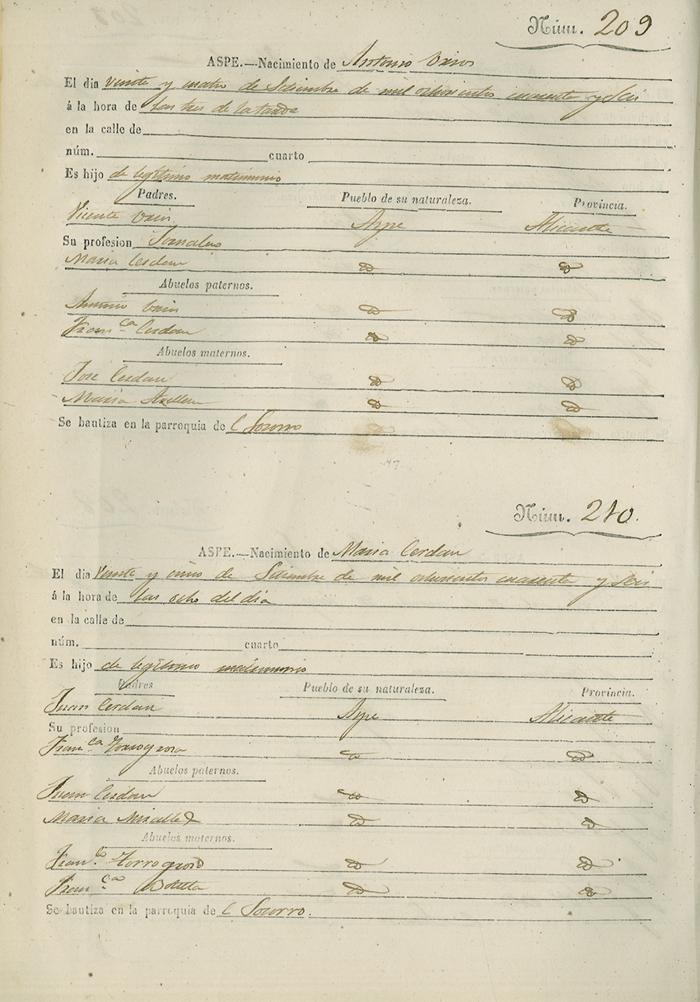 Núm. 209
ASPE.—Nacimiento de Antonio
El dia veinte y cuatro de Setiembre de mil ochocientos cuarenta y seis
á la hora de las tres de la tarde
en la calle de
núm. cuarto
Es hijo de legitimo matrimonio
Padres. Pueblo de su naturaleza. Provincia.
Vicente Aspe Alicante
Su profesion Jornalero
Maria Cerdan
Abuelos paternos.
Antonio
Fran.ca Cerdan
Abuelos maternos.
Jose Cerdan
Maria
Se bautiza en la parroquia de l Socorro
Núm. 210.
ASPE.—Nacimiento de Maria Cerdan
El dia veinte y cinco de Setiembre de mil ochocientos cuarenta y seis
á la hora de las ocho del dia
en la calle de
núm. cuarto
Es hijo de legitimo matrimonio
Padres Pueblo de su naturaleza. Provincia.
Juan Cerdan Aspe Alicante
Su profesion
Fran.ca Torregrosa
Abuelos paternos.
Juan Cerdan
Maria Miralles
Abuelos maternos.
Fran.co Torregrosa
Fran.ca Botella
Se bautiza en la parroquia de l Socorro.